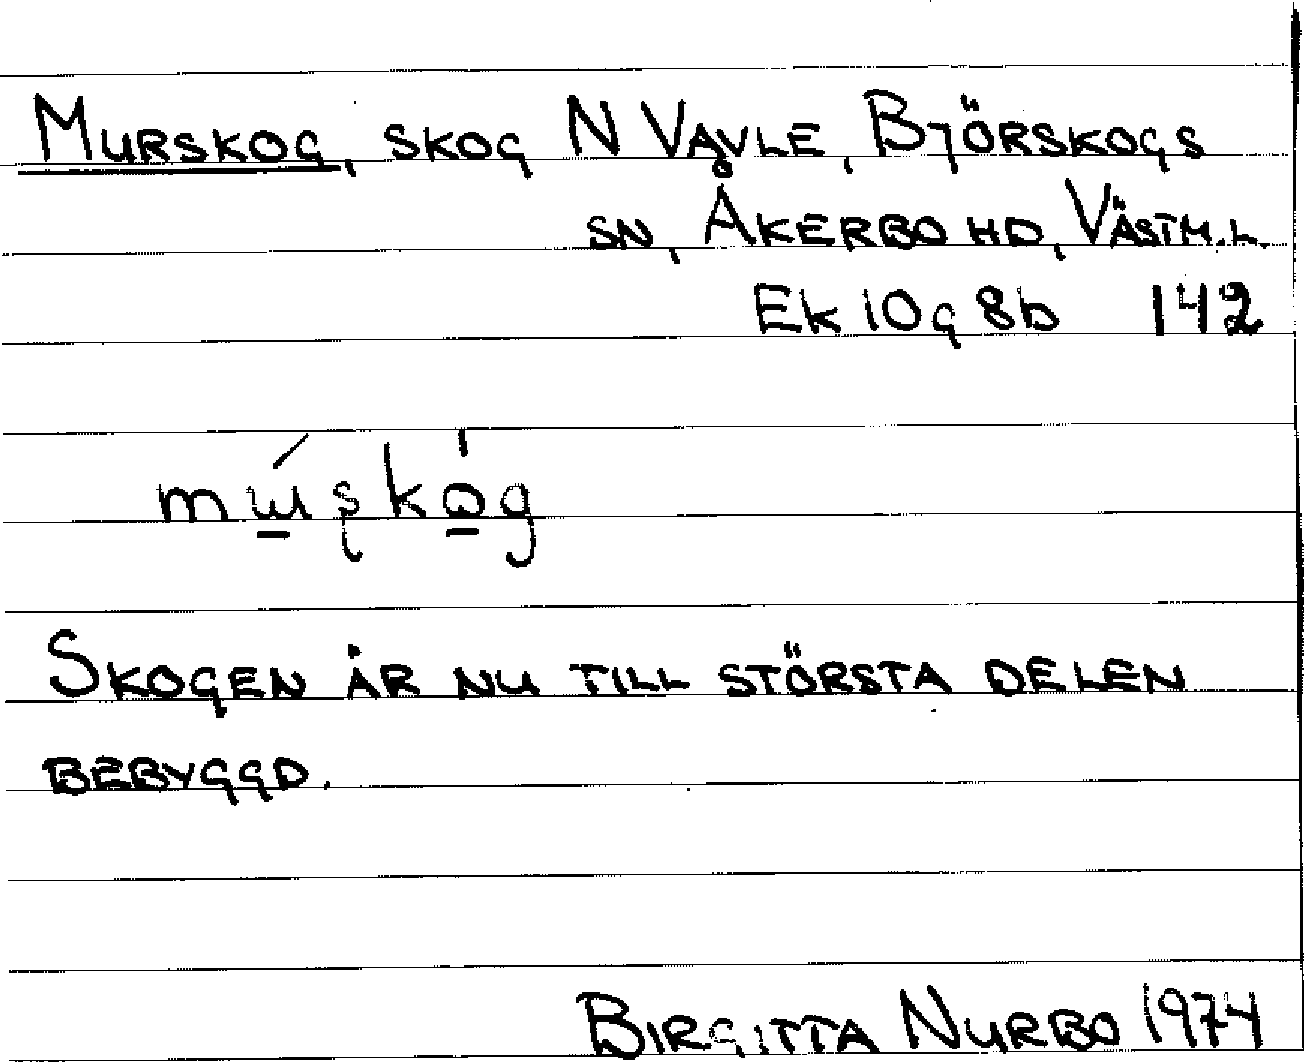 MURSKOG, SKOG N VÅVLE, BJÖRSKOGS
SN, ÅKERBO HD, VÄSTM.L.
EK 10g 8b 142
SKOGEN ÄR NU TILL STÖRSTA DELEN
BEBYGGD.
BIRGITTA NURBO 1974